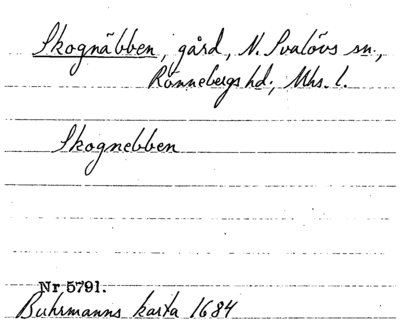 Skognäbben, gård, N. Svalövs sn.,
Rönnebergs hd., Mhs. l.
Skognebben
Nr 5791.
Buhrmanns karta 1684